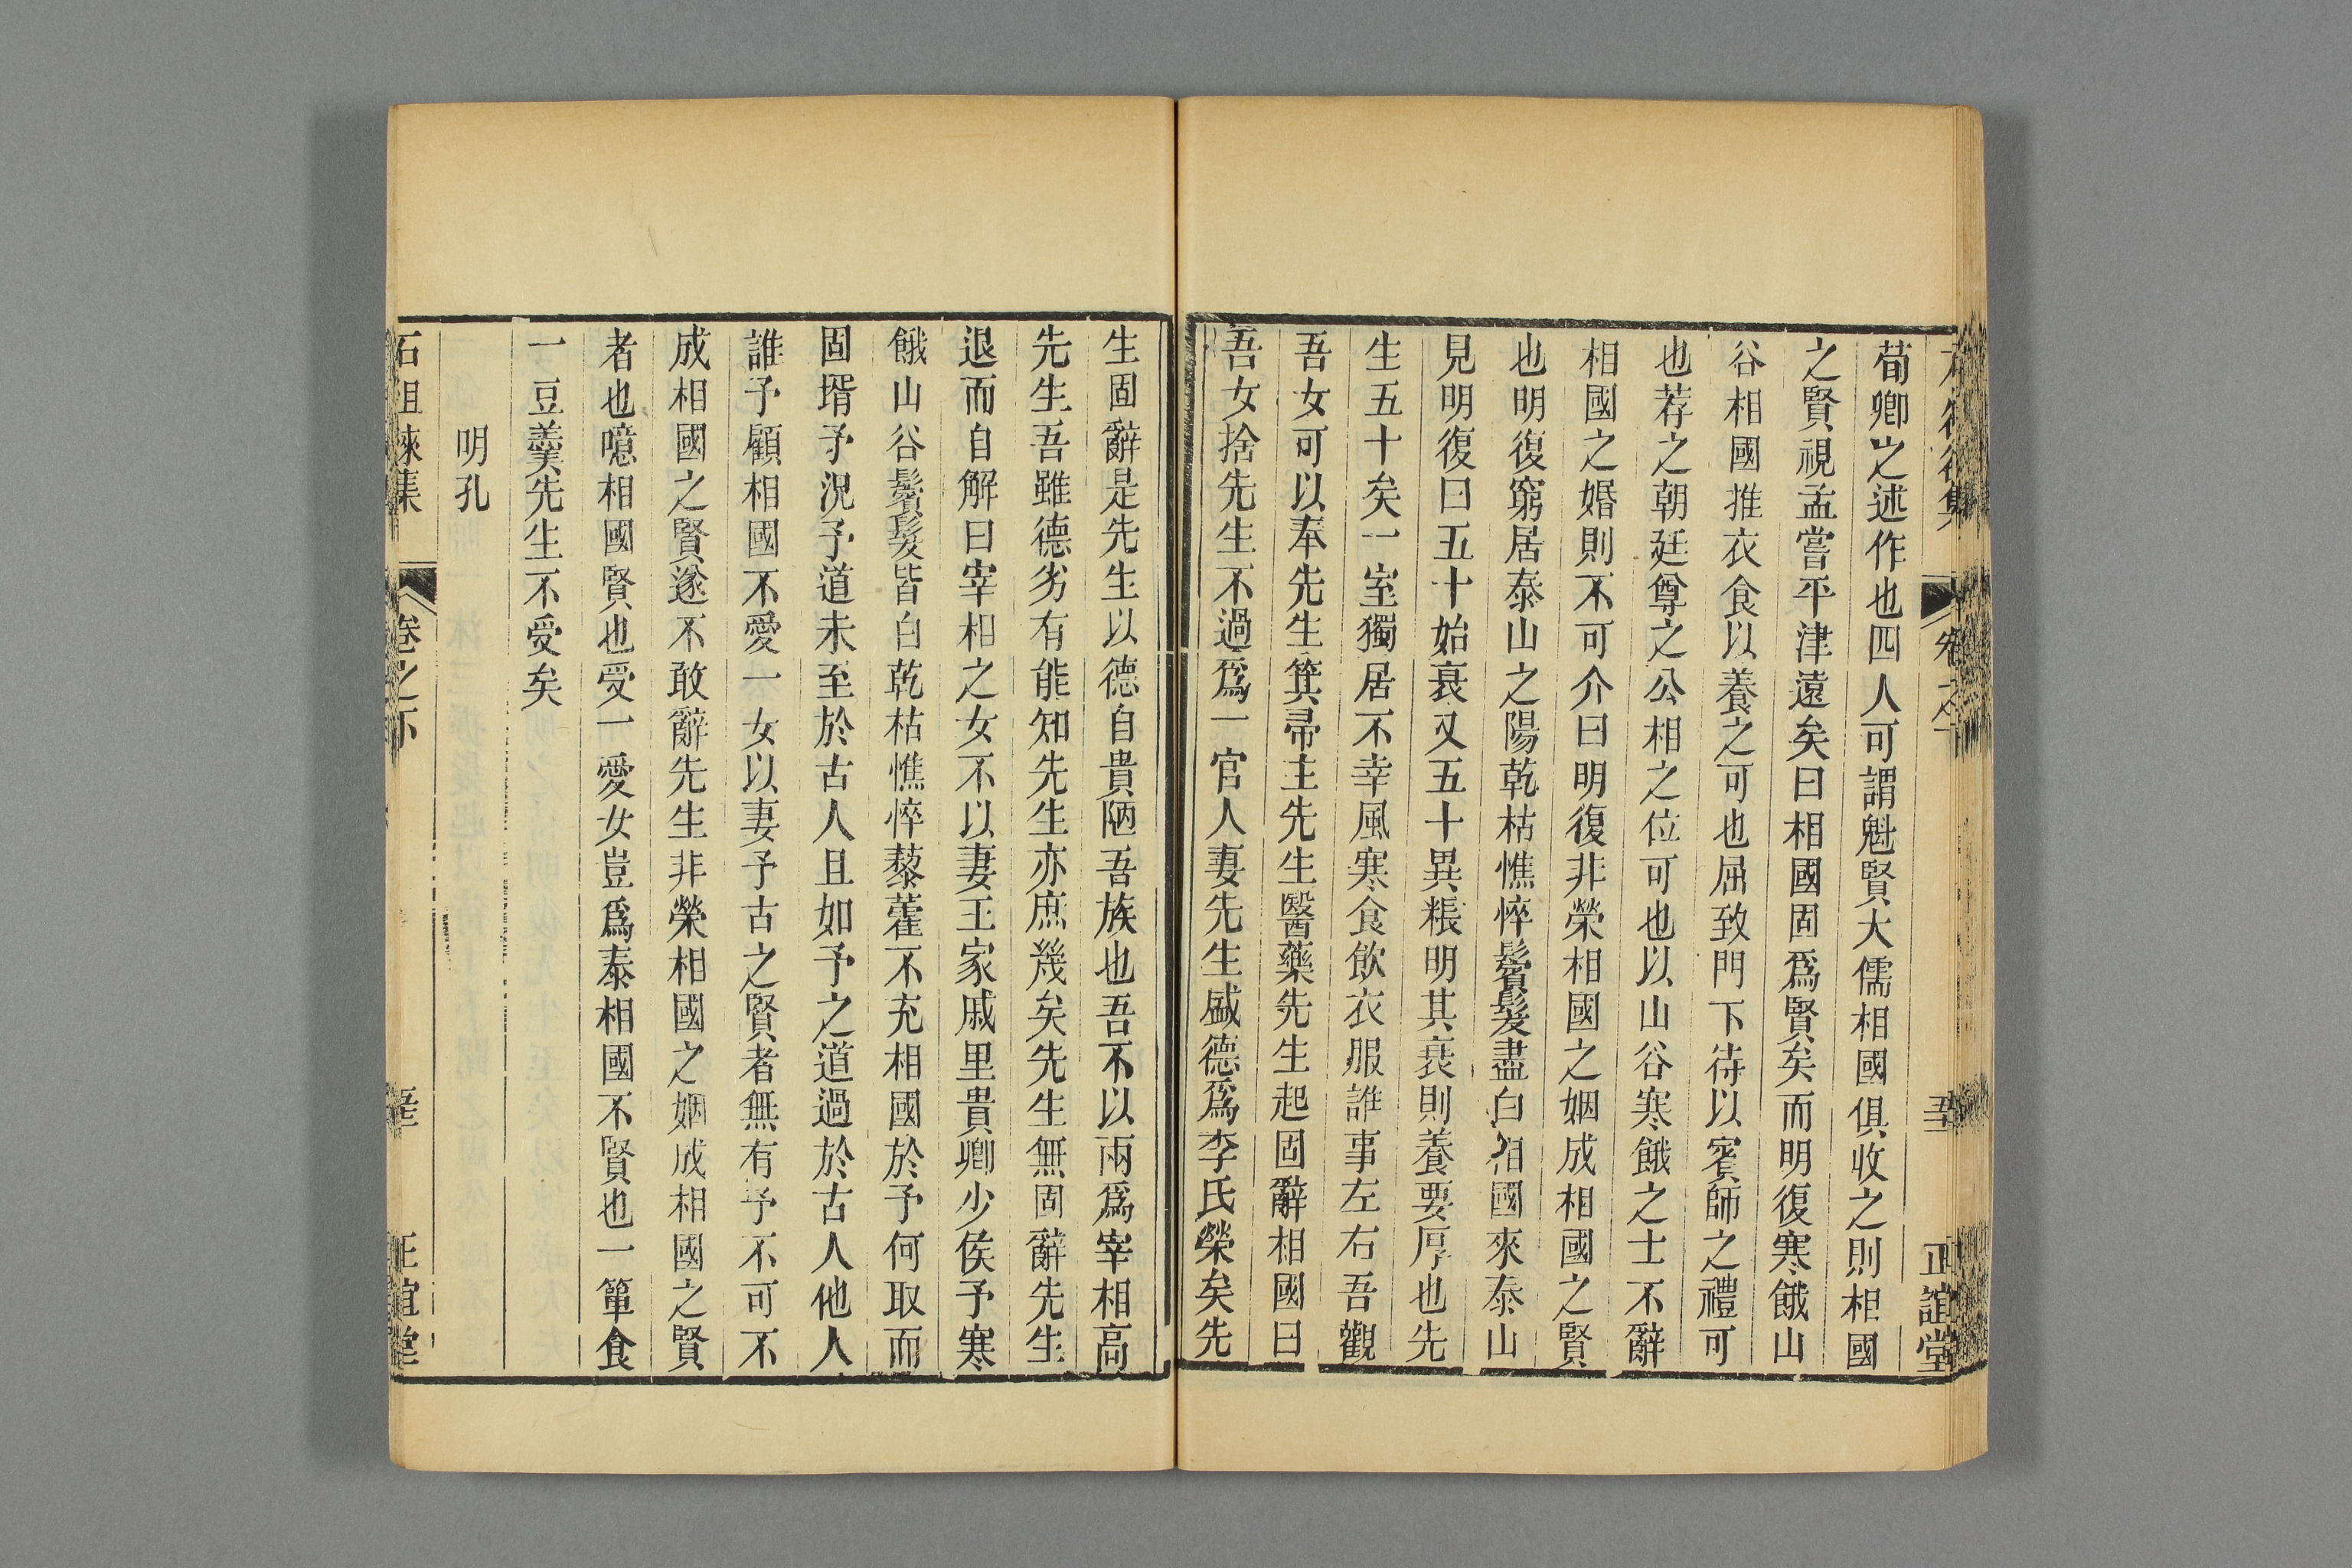 荀卿之述作也四人可謂魁賢大儒相國俱收之則相國
之賢視孟嘗平津遠矣曰相國固爲賢矣而明復寒餓山
谷相國推衣食以養之可也屈致門下待以賓師之禮可
也荐之朝廷尊之公相之位可也以山谷寒餓之士不辭
相國之婚則不可介曰明復非榮相國之姻成相國之賢
也明復窮居泰山之陽乾枯憔悴鬢髮盡白相國來泰山
見明復曰五十始衰又五十異粻明其衰則養要厚也先
生五十矣一室獨居不幸風寒食飲衣服誰事左右吾觀
吾女可以奉先生箕帚主先生醫藥先生起固辭相國曰
吾女捨先生不過爲一官人妻先生盛德爲李氏榮矣先
生固辭是先生以德自貴陋吾族也吾不以兩爲宰相高
先生吾雖德劣有能知先生亦庶幾矣先生無固辭先生
退而自解曰宰相之女不以妻王家戚里貴卿少侯予寒
餓山谷鬢髮皆白乾枯憔悴藜藿不充相國於予何取而
固壻予況予道未至於古人且如予之道過於古人他人
誰予顧相國不愛一女以妻予古之賢者無有予不可不
成相國之賢遂不敢辭先生非榮相國之姻成相國之賢
者也噫相國賢也受一愛女豈爲泰相國不賢也一簞食
一豆羹先生不受矣
明孔
石徂徠集
卷之下
正誼堂